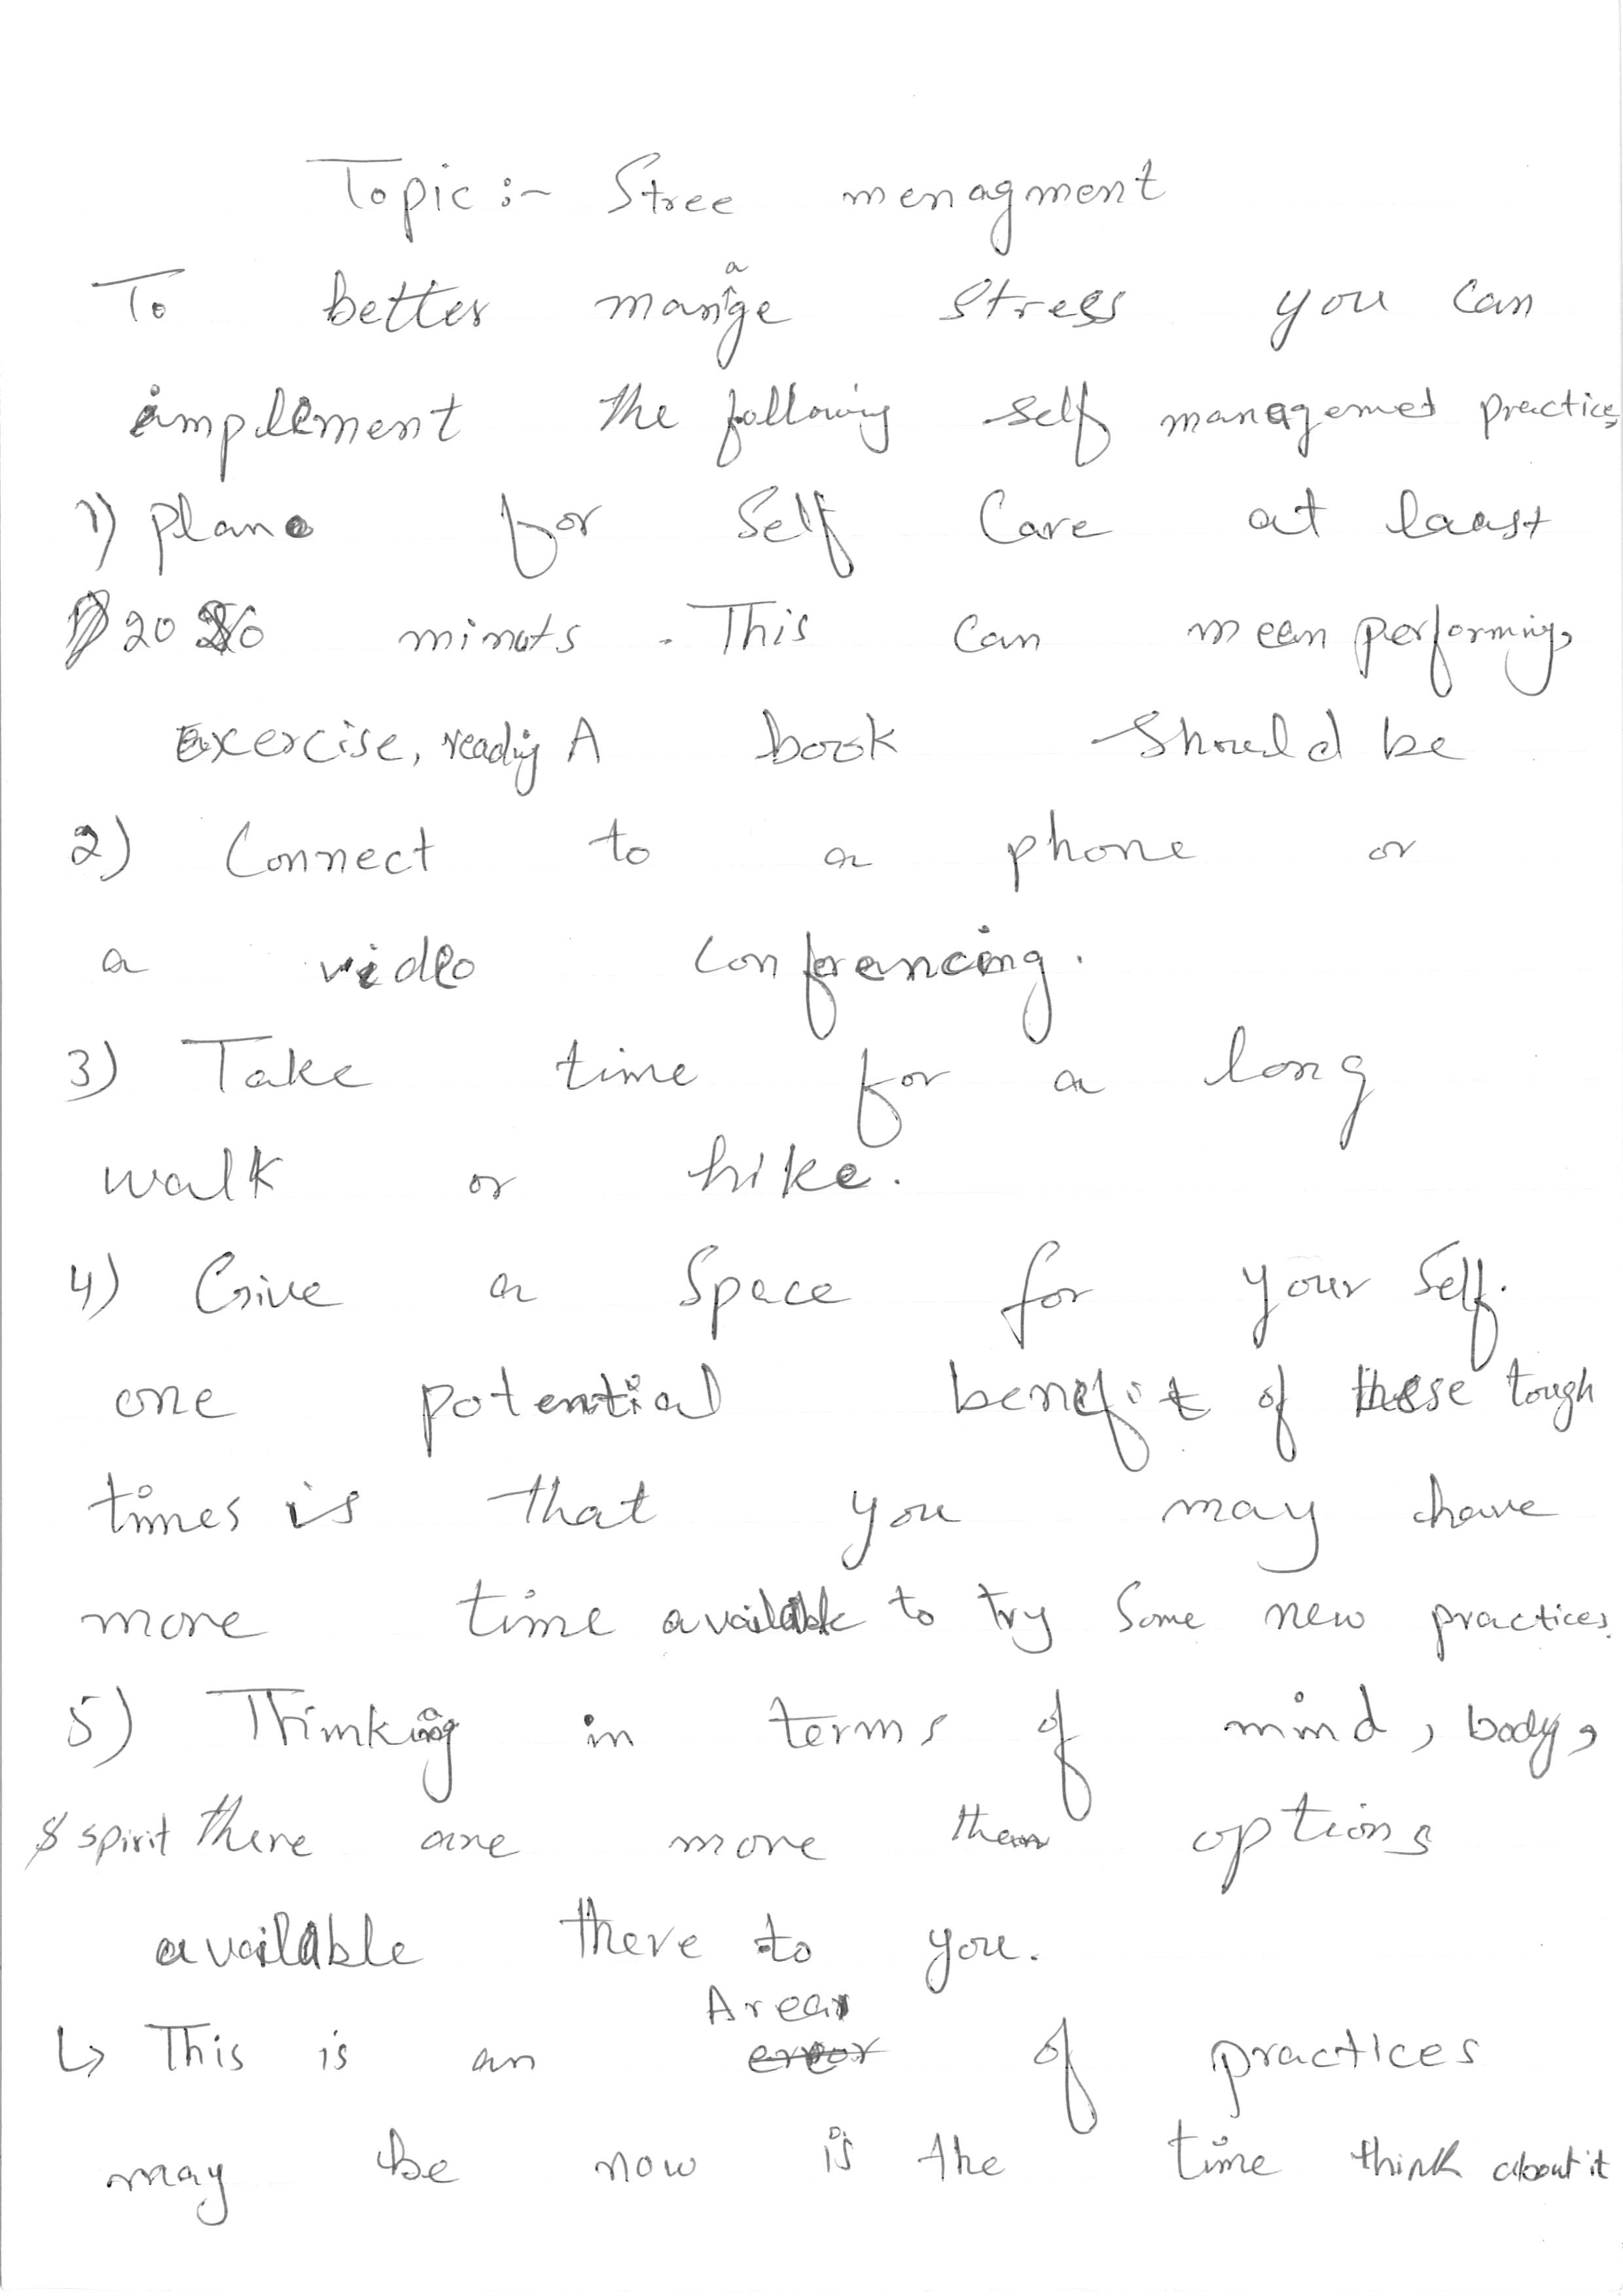 Topic :- Stree menagment
To better manage stress you can
implement the following self managemet practices
1) plan for Self Care at laast
20 minuts . This can mean performing,
Exercise, readig A book should be
2) Connect to a phone or
a video conferancing.
3) Take time for a long
walk or hike.
4) Give a Space for your Self.
one potential benefit of these tough
times is that you may have
more time available to try Some new practices.
5) Thinking in terms of mind, body,
& spirit there are more than options
available there to you.
↳ This is an Area of practices
may be now is the time think about it